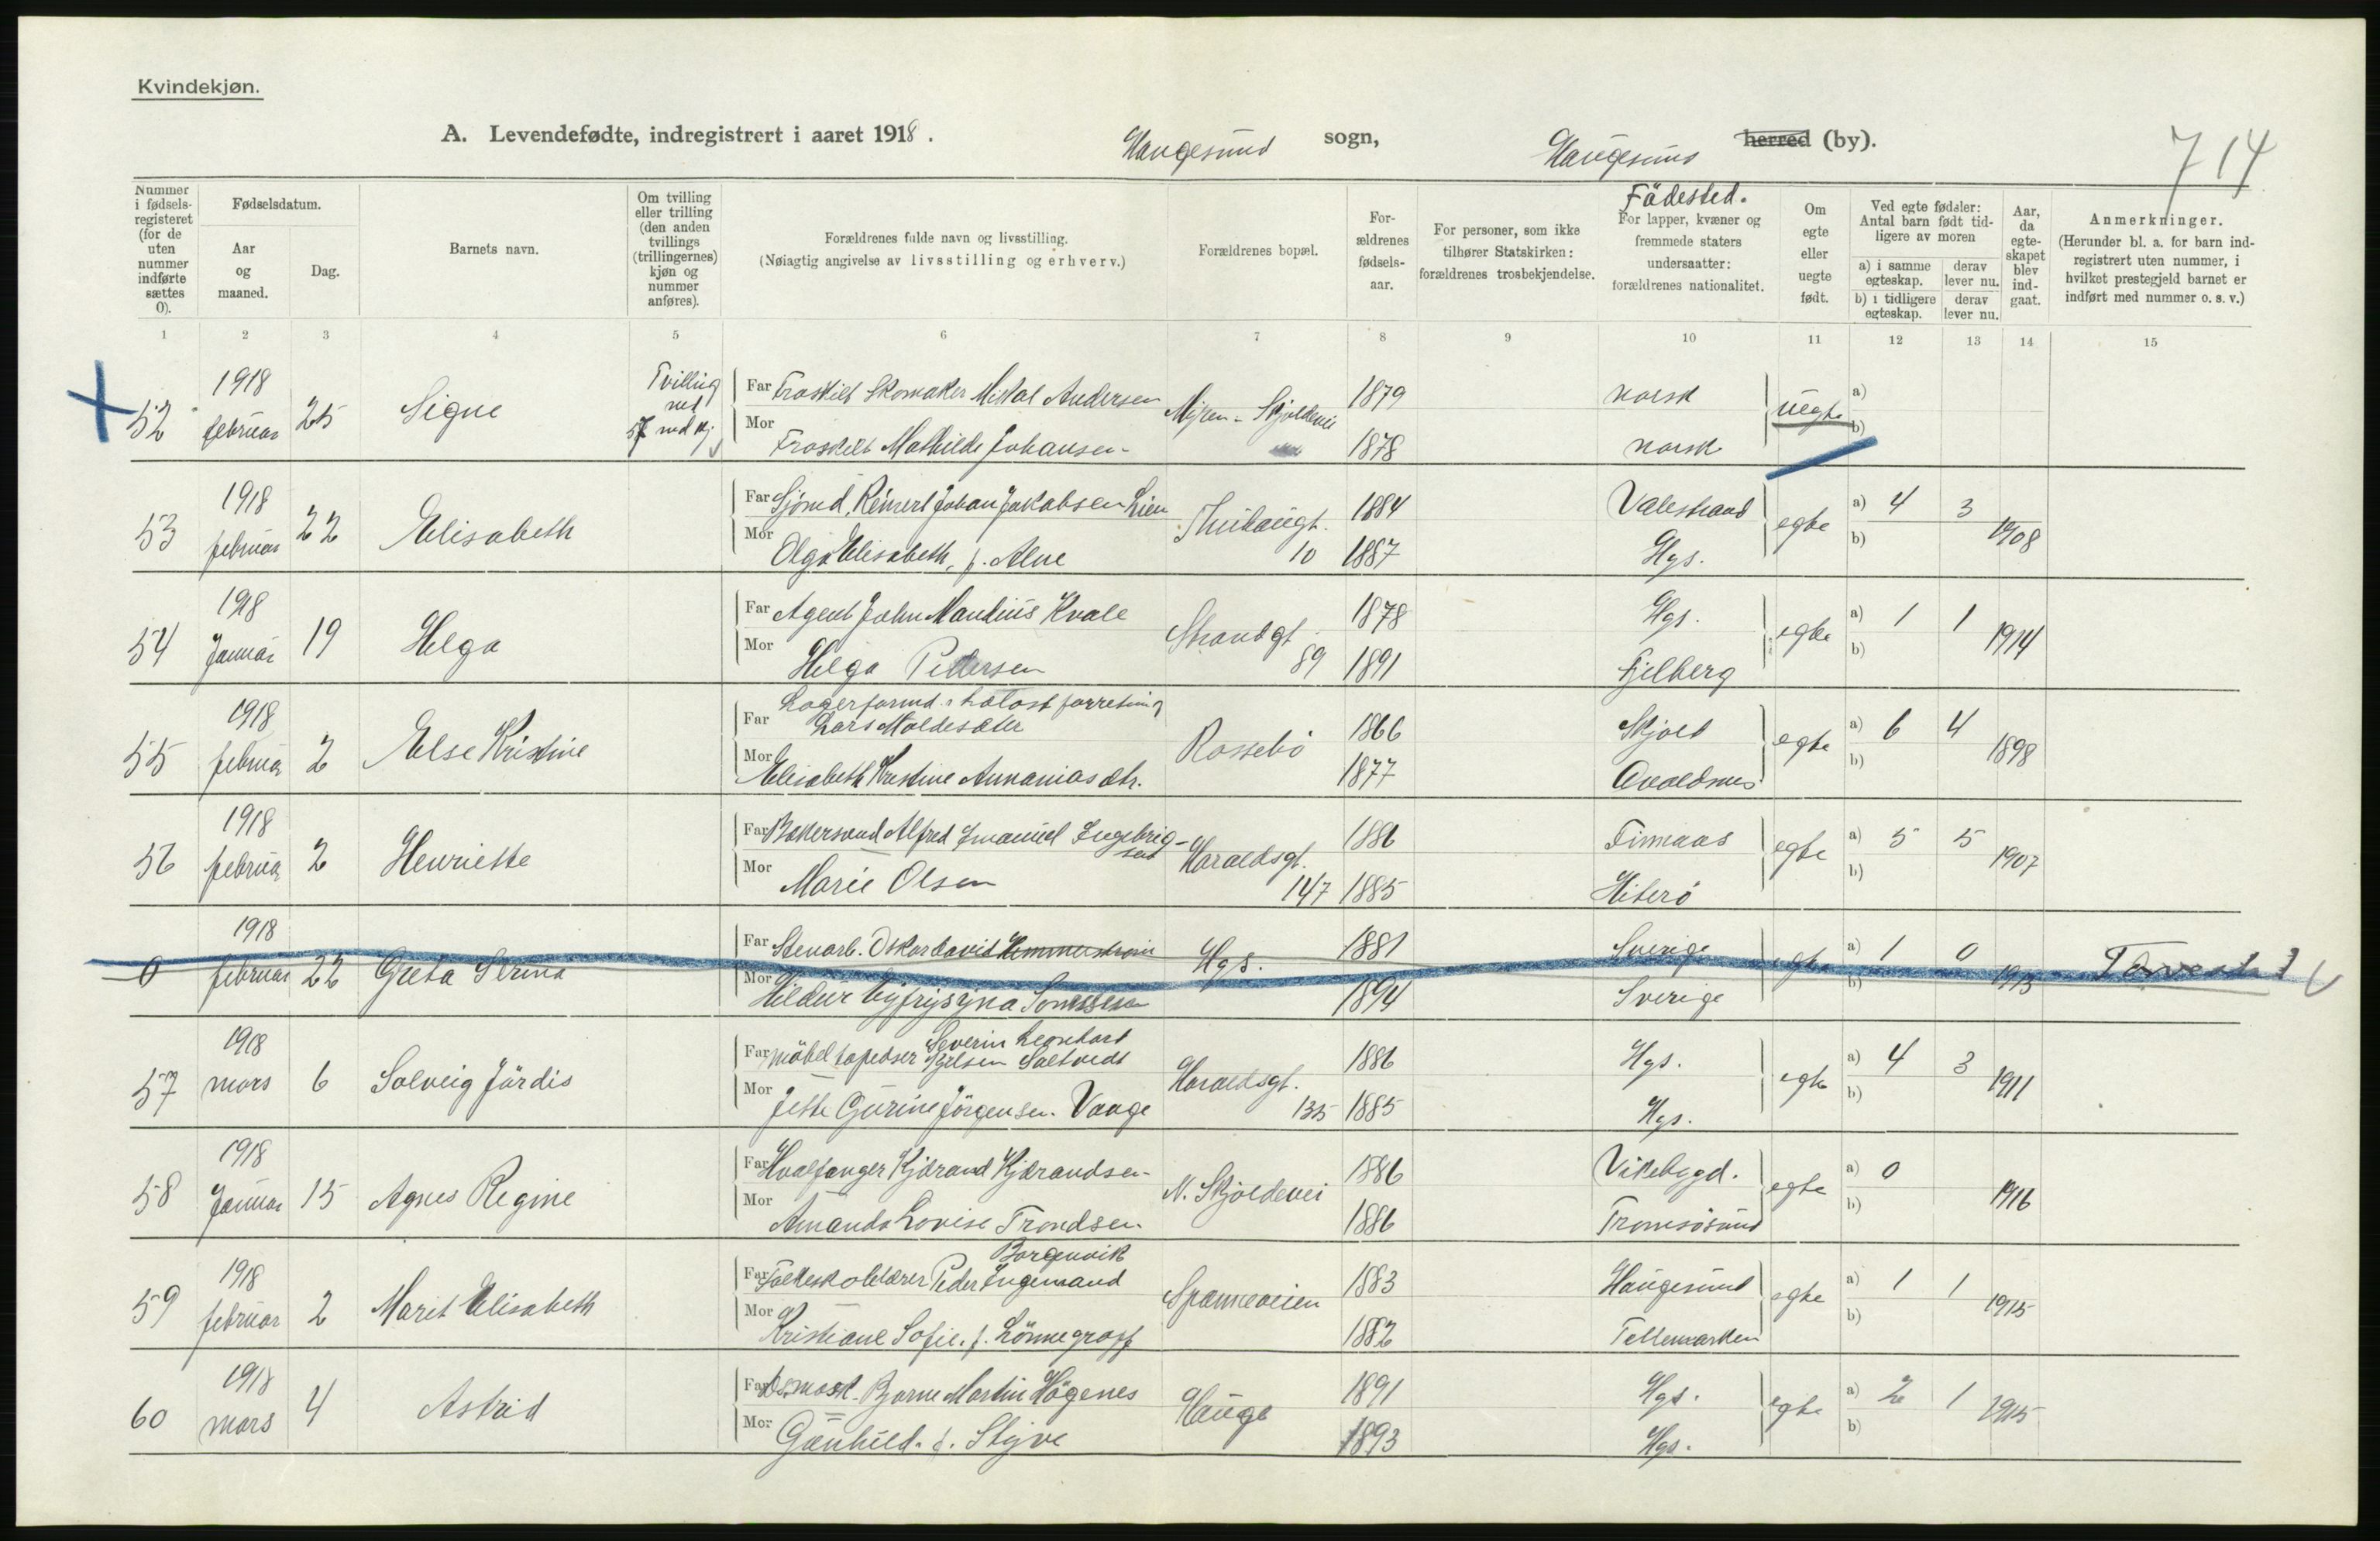 Kvindekjøn.
A. Levendefødte, indregistrert i aaret 1918. Haugesund sogn, Haugesund herred (by).
714
Nummer i fødsels-registeret (for de uten nummer indførte sættes 0).
Fødselsdatum.
Aar og maaned.
Dag.
Barnets navn.
Om tvilling eller trilling (den anden tvillings (trillingernes) kjøn og nummer anføres).
Forældrenes fulde navn og livsstilling.
(Nøiagtig angivelse av livsstilling og erhverv.)
Forældrenes bopæl.
For-ældrenes fødsels-aar.
For personer, som ikke tilhører Statskirken: forældrenes trosbekjendelse.
Födested.
For lapper, kvæner og fremmede staters undersaatter: forældrenes nationalitet.
Om egte eller uegte født.
Ved egte fødsler: Antal barn født tid-ligere av moren
a) i samme egteskap.
derav lever nu.
b) i tidligere egteskap.
derav lever nu.
Aar, da egte-skapet blev ind-gaat.
Anmerkninger.
(Herunder bl. a. for barn ind-registrert uten nummer, i hvilket prestegjeld barnet er indført med nummer o. s. v.)
1 2 3 4 5 6 7 8 9 10 11 12 13 14 15
52 1918 februar 25 Signe Tvilling med
Far Fraskilt Skomaker Mikal Andersen 1879 norsk uegte a)
Mor Fraskilt Mathilde Johansen 1878 norsk b)
53 1918 februar 22 Elisabeth
Far Sjömd. Reinert Johan Jakobsen Lien 1884 Valestrand egte a) 4 3 1908
Mor Olga Elisabeth, f. Alne 10 1887 Hgs. b)
54 1918 Januar 19 Helga
Far Agent John Mandius Kvale Strandgt. 1878 Hgs. egte a) 1 1 1914
Mor Helga Pedersen 89 1891 Fjelberg b)
55 1918 februar 2 Else Kristine
Far Lars Moldesæter Rossebö 1866 Skjold egte a) 6 4 1898
Mor Elisabeth Kristine Annaniasdtr. 1877 Avaldsnes b)
56 1918 februar 2 Henriette
Far Bakersvend Alfred Imanuel Ingebrigtsen Haraldsgt. 1886 Finnaas egte a) 5 5 1907
Mor Marie Olsen 147 1885 Hiterö b)
0 1918 februar 22 Greta
Far Stenarb. Oskar David Hgs. 1881 Sverige egte a) 1 0 1913 Torvestad
Mor Hildur 1894 Sverige b)
57 1918 mars 6 Solveig Jördis
Far möbeltapetser Severin Leonhart Haraldsgt. 1886 Hgs. egte a) 4 3 1911
Mor Jette Gurine Jörgensen Vaage 135 1885 Hgs. b)
58 1918 Januar 15 Agnes Regine
Far Hvalfanger Kjærand Kjærandsen N. Skjoldevei 1886 Vikebygd. egte a) 0 1916
Mor Amanda Lovise Trondsen 1886 Tromsösund b)
59 1918 februar 2 Marit Elisabeth
Far Folkeskolelærer Peder Ingemand Borgenvik Spanneveien 1883 Haugesund egte a) 1 1 1915
Mor Kristiane Sofie. f. Lönnegraff 1882 Tellemarken b)
60 1918 mars 4 Astrid
Far Bjarne Martin Högenes Hauge 1891 Hgs. egte a) 2 1 1915
Mor Gunhild. f. Styve 1893 Hgs. b)